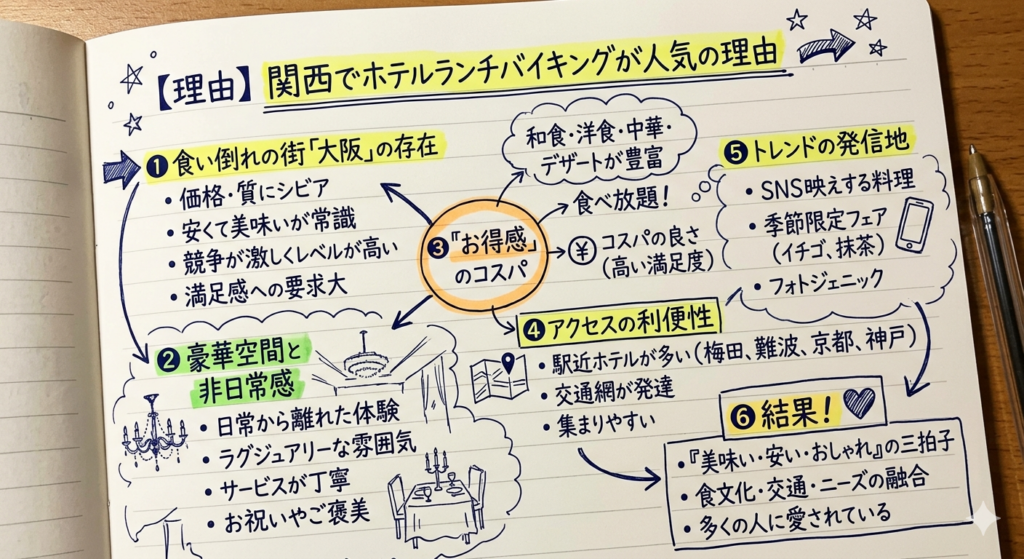 【理由】関西でホテルランチバイキングが人気の理由
❶ 食い倒れの街「大阪」の存在
・価格・質にシビア
・安くて美味いが常識
・競争が激しくレベルが高い
・満足感への要求大
❷ 豪華空間と
非日常感
・日常から離れた体験
・ラグジュアリーな雰囲気
・サービスが丁寧
・お祝いやご褒美
❸『お得感』
のコスパ
和食・洋食・中華・
デザートが豊富
食べ放題!
¥ コスパの良さ
(高い満足度)
❹ アクセスの利便性
・駅近ホテルが多い(梅田、難波、京都、神戸)
・交通網が発達
・集まりやすい
❺ トレンドの発信地
・SNS映えする料理
・季節限定フェア
(イチゴ、抹茶)
・フォトジェニック
❻ 結果!
・『美味い・安い・おしゃれ』の三拍子
・食文化・交通・ニーズの融合
・多くの人に愛されている